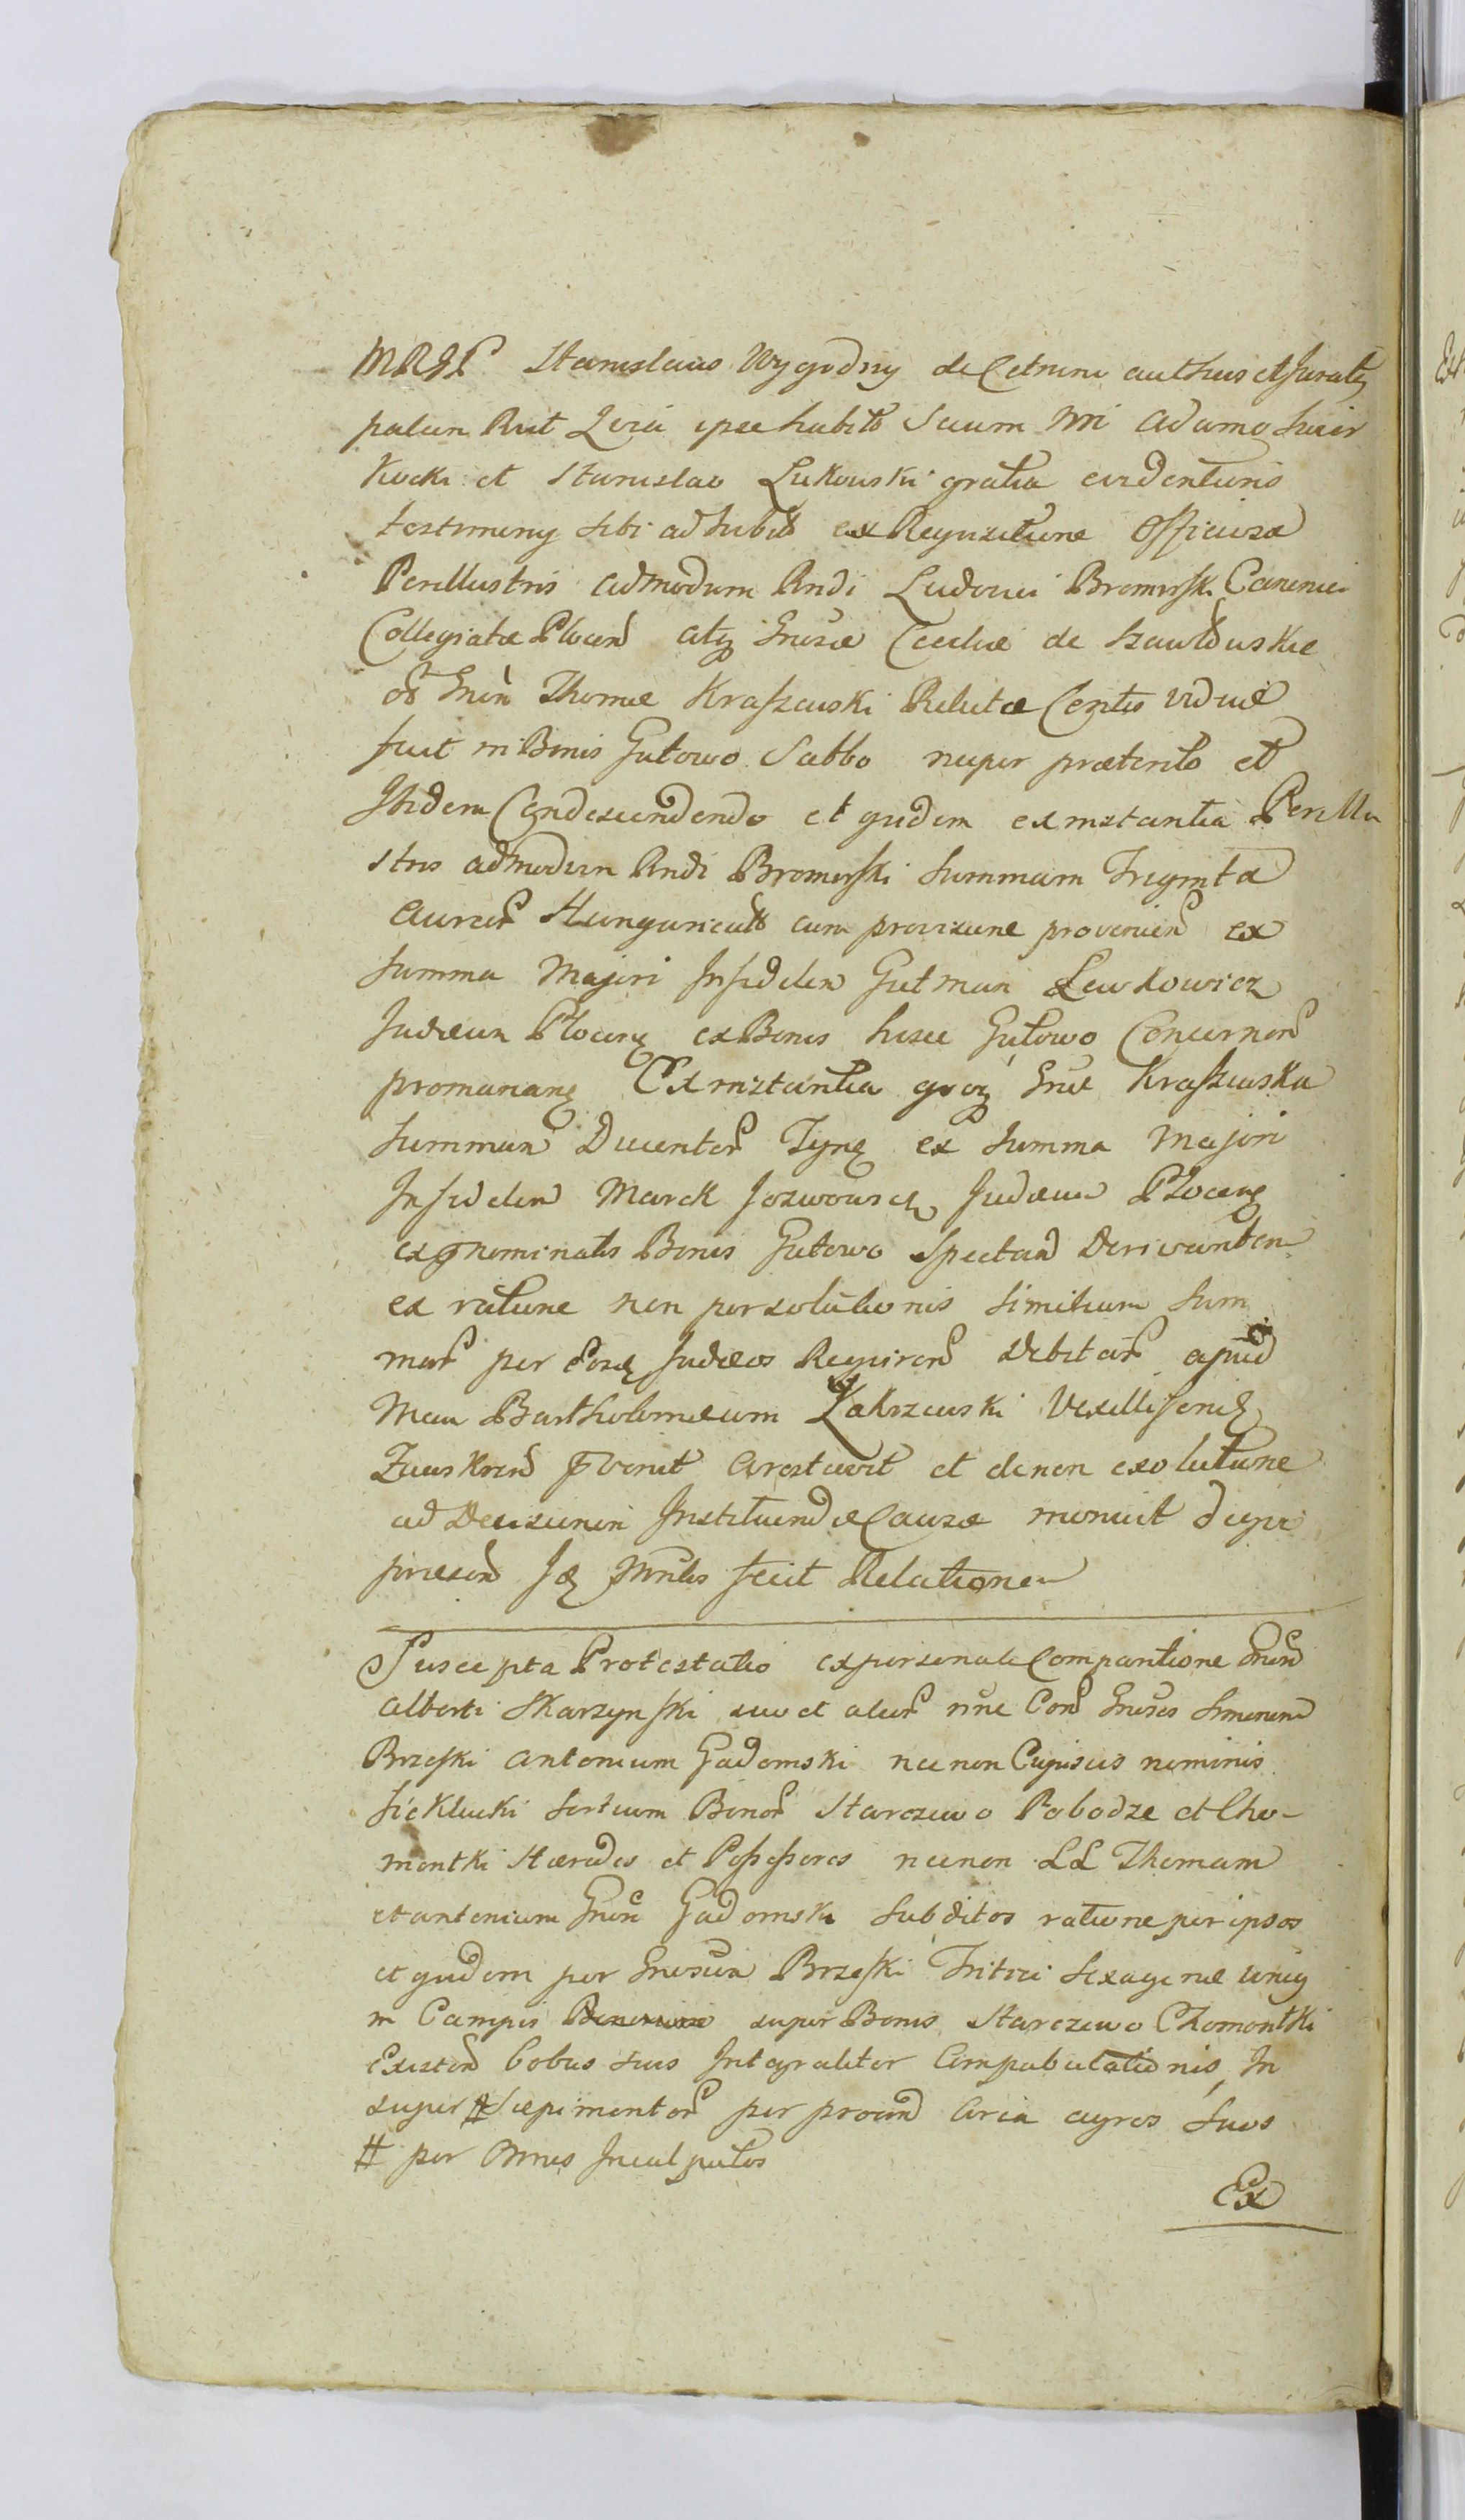 MRGL Stanislaus Wygodny de Cetnine authus et Juratq
palam Rit ipse habito Secum Nri Adamo Swier
Kocki et Stanislao Lukowski gratia evidentioris
testimony sibi adhibit ex Requizitione Officioza
Perillustris admodum Rndi Ludovici Bromirski Canonici
Collegiatæ Plocen atq Gnosæ Ceciliæ de Szawłowskie
ol Gnin Thomæ Kraszewski Relictæ Coztis viduæ
fuit in Bonis Gutowo Sabbo nuper præterito et
Ibidem Condescendendo et quidem ex instantia Perillu
stris admodum Rndi Bromirski Summam Triginta
Aureor Hungaricall cum provizione provenien ex
summa Majori Infidelem Gutman Lewkowicz
Judæum Plocenq ex Bonis hisce Gutowo Concernen
promananq Ex instantia qvoq Gnæ Kraszewska
Summam Ducentor Tynq ex Summa Majori
Infidelem Marek Jozwowicz Judæum Plocenq
exgnominatis Bonis Gutowo Spectan Derivanten
ex ratione non persolutionis similium Sum
mar per Eosq Judæos Requiren debitar apud
Mcum Bartholomæum Zakrzewski Vexilliferuq
Zawskren Pvenit Arestavit et de non exolutione
ad Decisionem Instituendæ Causæ monuit deqve
præsen Jq Mnlis fecit Relationem
Suscepta Protestatio ex personali Comparitione Gnen
Alberti Skarzynski suo et alior nne Con Gnosos Simonem
Brzeski Antonium Gadomski necnon Cujusvis nominis
Sieklucki Sortium Bonor Starczewo Pobodze et Cho-
montki Hæredes et Possessores necnon LL Thomam
et Antonium Gnon Gadomski Subditos ratione per ipsos
et quidem per Gnosum Brzeski Tritici Sexagenæ uniq
in Campis super Bonis Starczewo Chomontki
Existen bobus suis Integraliter Compabulationis, In
super # Sæpimentor per procin Circa agros Suos
# per Omnes Inculpatos
Ex